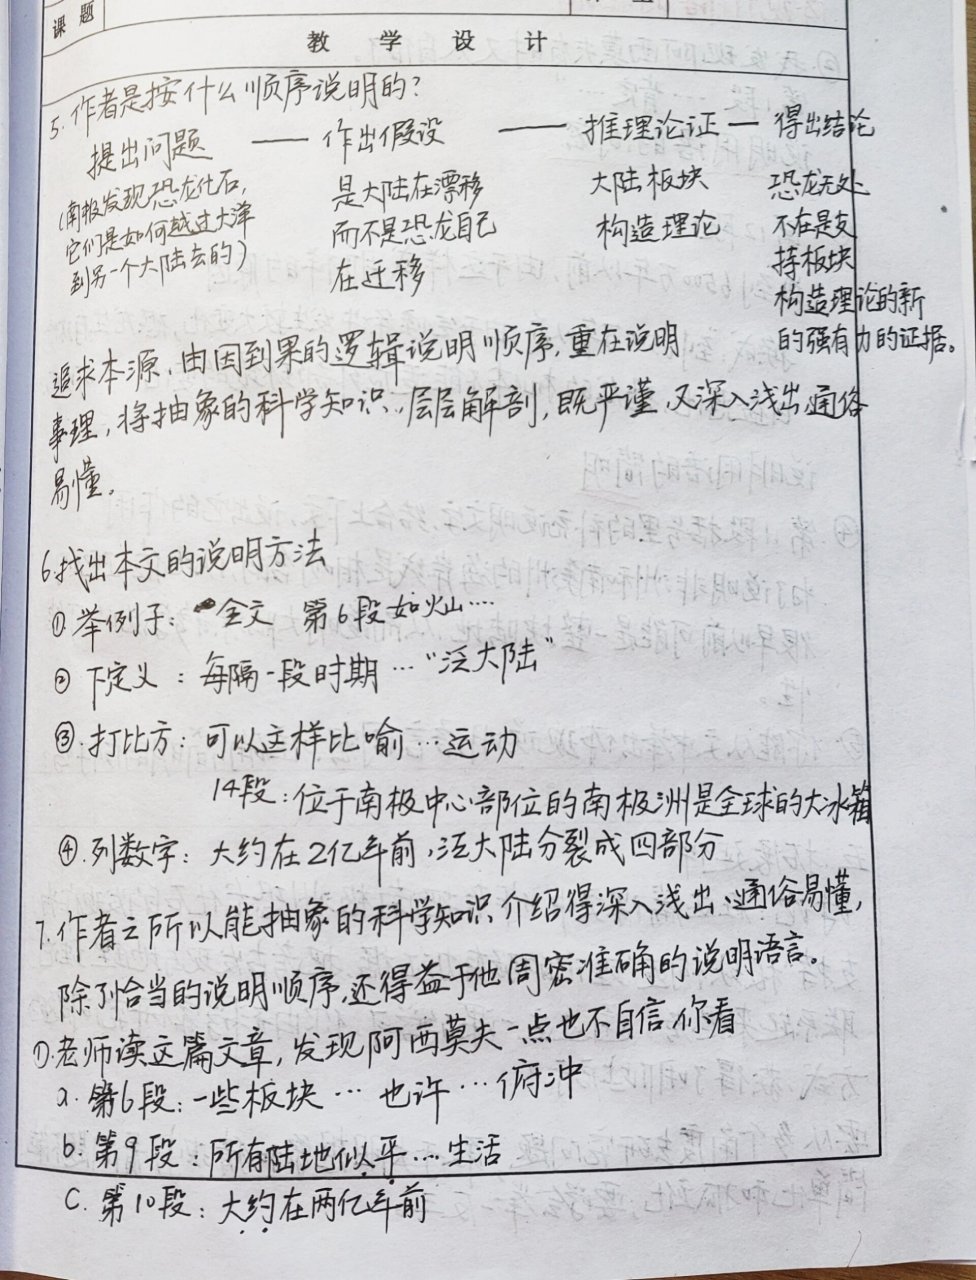 课题
教学设计
5.作者是按什么顺序说明的?
提出问题 —— 作出假设 —— 推理论证 — 得出结论
(南极发现恐龙化石,
它们是如何越过大洋
到另一个大陆去的)
是大陆在漂移
而不是恐龙自己
在迁移
大陆板块
构造理论
恐龙无处
不在是支
持板块
构造理论的新
的强有力的证据。
追求本源、由因到果的逻辑说明顺序,重在说明
事理,将抽象的科学知识,层层解剖,既严谨、又深入浅出,通俗
易懂。
6.找出本文的说明方法
①举例子: 全文 第6段如火山……
②下定义:每隔一段时期…“泛大陆”
③.打比方:可以这样比喻…运动
14段:位于南极中心部位的南极洲是全球的大冰箱
④.列数字:大约在2亿年前,泛大陆分裂成四部分
7.作者之所以能抽象的科学知识介绍得深入浅出、通俗易懂,
除了恰当的说明顺序,还得益于他周密准确的说明语言。
①.老师读这篇文章,发现阿西莫夫一点也不自信,你看
a.第6段:一些板块…也许…俯冲
b.第9段:所有陆地似乎…生活
c.第10段:大约在两亿年前